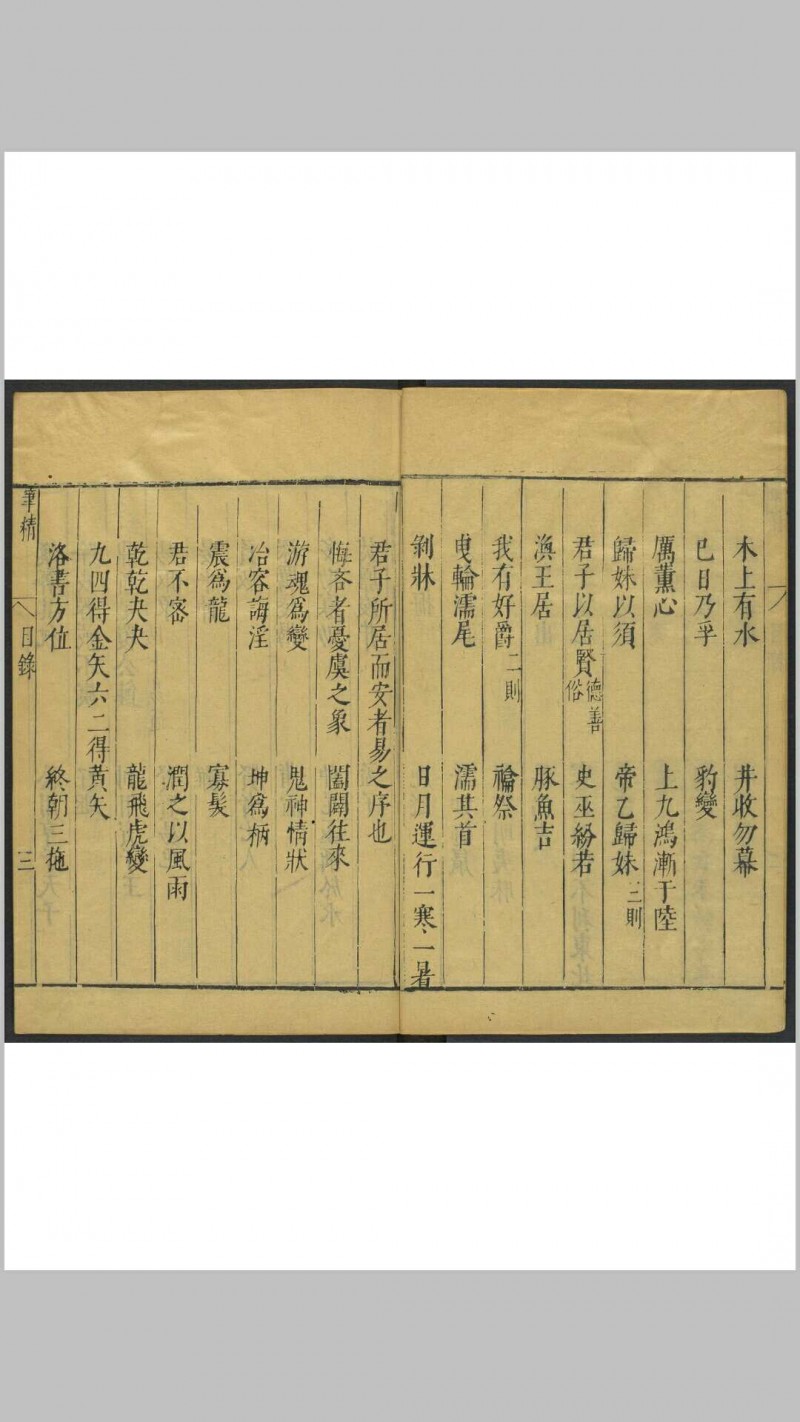 木上有水　井收勿幕
巳日乃孚　豹變
厲薰心　上九鴻漸于陸
歸妹以須　帝乙歸妹三則
君子以居賢德善俗　史巫紛若
渙王居　豚魚吉
我有好爵二則　禴祭
曳輪濡尾　濡其首
剝牀　日月運行一寒一暑
君子所居而安者易之序也
悔吝者憂虞之象　闔闢往來
游魂爲變　鬼神情狀
冶容誨淫　坤爲柄
震爲龍　寡髮
君不密　潤之以風雨
乾乾夬夬　龍飛虎變
九四得金矢六二得黃矢
洛書方位　終朝三拖
筆精　目錄　三